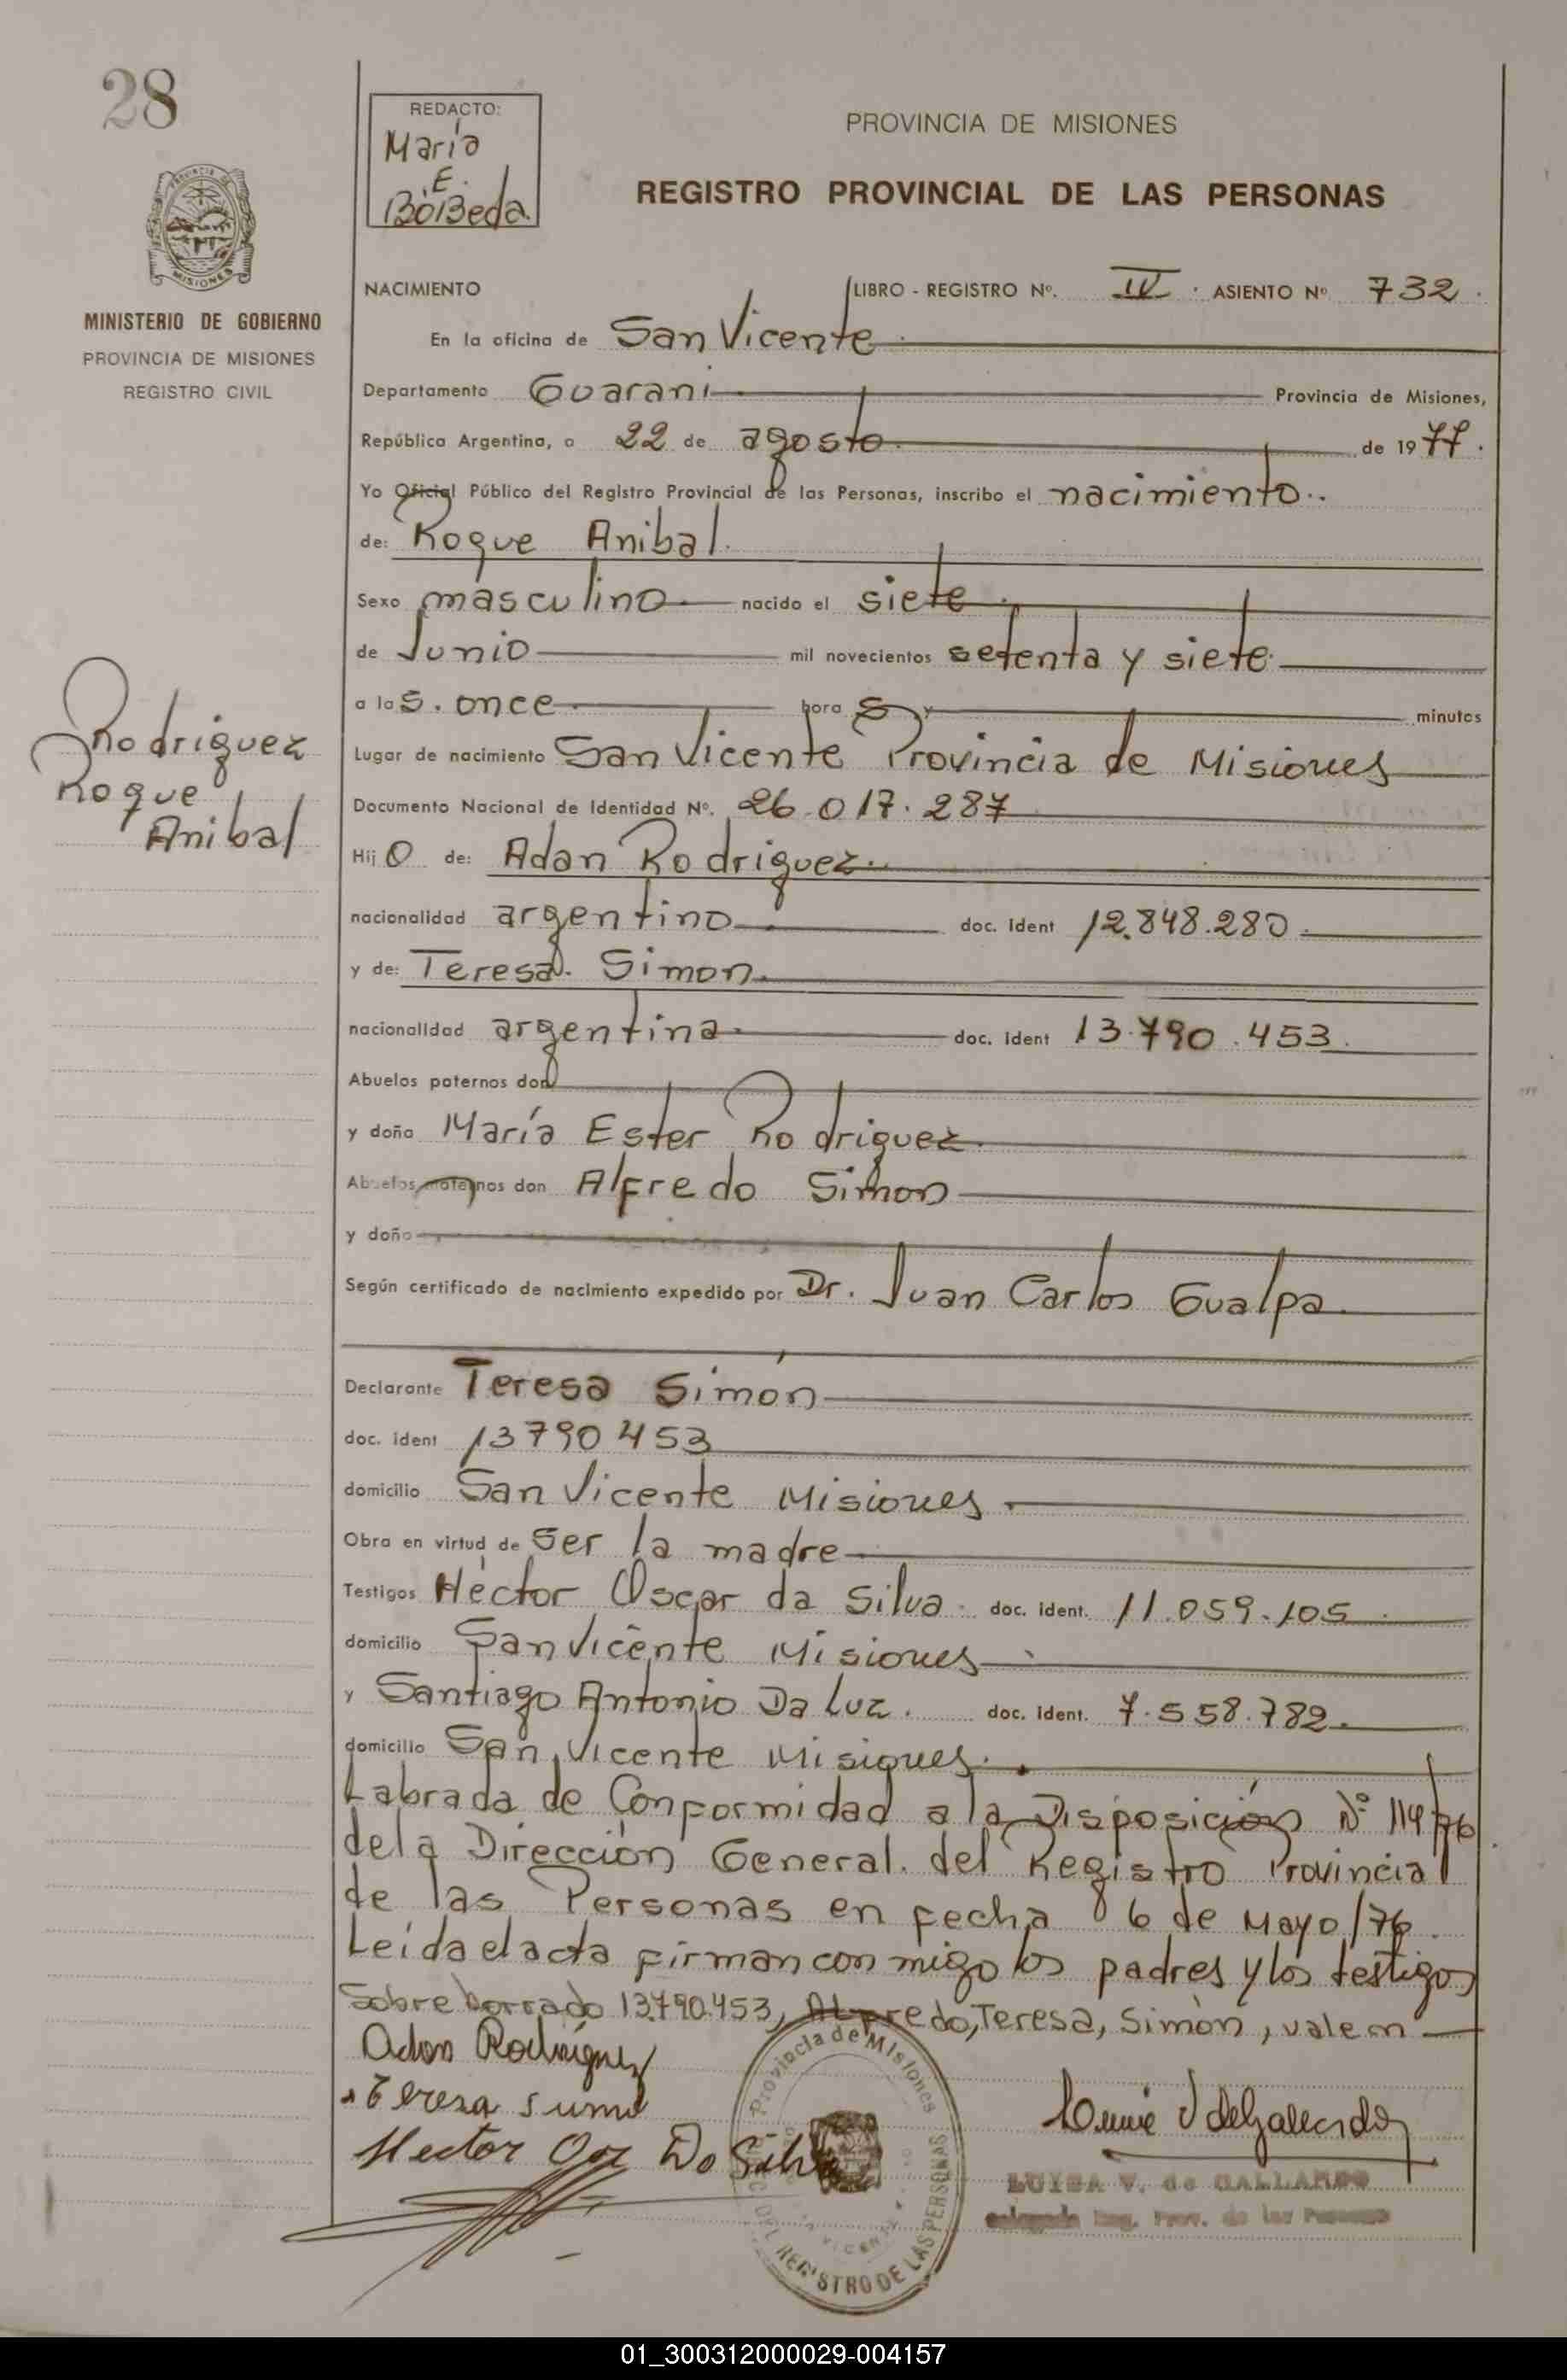 28
REDACTO:
María
E.
BóBeda.
PROVINCIA DE MISIONES
REGISTRO PROVINCIAL DE LAS PERSONAS
MISIONES
MINISTERIO DE GOBIERNO
PROVINCIA DE MISIONES
REGISTRO CIVIL
NACIMIENTO LIBRO - REGISTRO Nº. IV. ASIENTO Nº 732.
En la oficina de San Vicente
Departamento Guarani Provincia de Misiones,
República Argentina, a 22 de agosto de 1977.
Yo Oficial Público del Registro Provincial de las Personas, inscribo el nacimiento..
de: Roque Anibal.
Sexo masculino nacido el siete
de Junio mil novecientos setenta y siete
a las. once hora s y minutos
Lugar de nacimiento San Vicente Provincia de Misiones
Documento Nacional de Identidad Nº. 26.017.287
Rodriguez
Roque
Anibal
Hijo de: Adan Rodriguez.
nacionalidad argentino doc. ident 12.848.280.
y de: Teresa. Simon.
nacionalidad argentina doc. ident 13.790.453.
Abuelos paternos don
y doña María Ester Rodriguez.
Abuelos maternos don Alfredo Simon
y doña
Según certificado de nacimiento expedido por Dr. Juan Carlos Gualpa.
Declarante Teresa Simon
doc. ident 13790453
domicilio San Vicente Misiones.
Obra en virtud de ser la madre
Testigos Héctor Oscar da Silva. doc. ident. 11.059.105.
domicilio San Vicente Misiones
y Santiago Antonio Da Luz. doc. ident. 7.558.782.
domicilio San Vicente Misiones.
Labrada de Conformidad a la Disposición Nº 114/76
de la Dirección General. del Registro Provincial
de las Personas en fecha 06 de Mayo/76.
Leída el acta firman conmigo los padres y los testigos
Sobre borrado 13.790.453, Alfredo, Teresa, Simón, valen
Adan Rodriguez
Hector Da Silva
Provincia de Misiones
DEL REGISTRO DE LAS PERSONAS
LUISA V. de GALLARDO
Delegada Reg. Prov. de las Personas
01_300312000029-004157